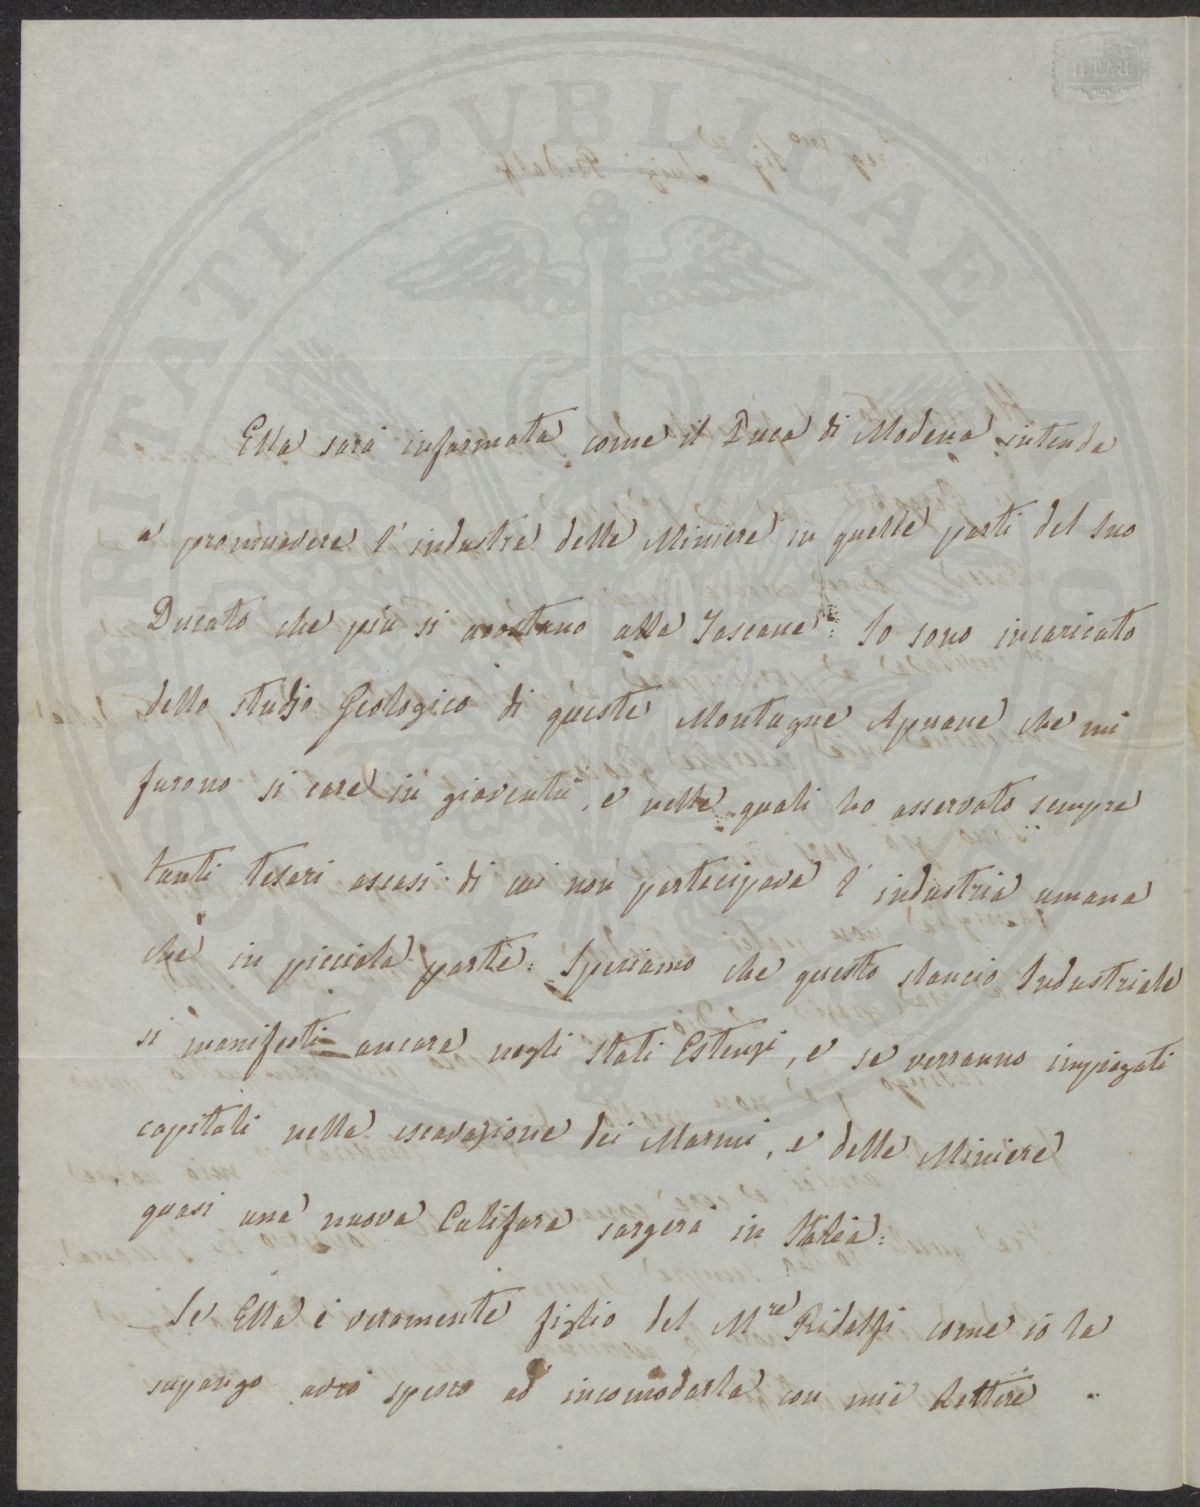 Ella sarà informata come il Duca di Modena intenda
a promuovere l'industria delle Miniere in quelle parti del suo
Ducato che più si accostano alla Toscana. Io sono incaricato
dello studio Geologico di queste Montagne Apuane che mi
furono si care in gioventù, e nelle quali ho osservato sempre
tanti tesori ascosi di cui non partecipava l'industria umana
che in picciola parte. Speriamo che questo slancio Industriale
si manifesti ancora negli Stati Estensi, e se verranno impiegati
capitali nella escavazione dei Marmi, e delle Miniere
quasi una nuova California sorgerà in Italia.
Se Ella è veramente figlio del M.re Ridolfi come io la
suppongo avrò spesso ad incomodarla con mie Lettere